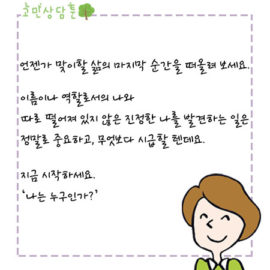 고민상담툰
언젠가 맞이할 삶의 마지막 순간을 떠올려 보세요.
이름이나 역할로서의 나와
따로 떨어져 있지 않은 진정한 나를 발견하는 일은
정말로 중요하고, 무엇보다 시급할 텐데요.
지금 시작하세요.
'나는 누구인가?'